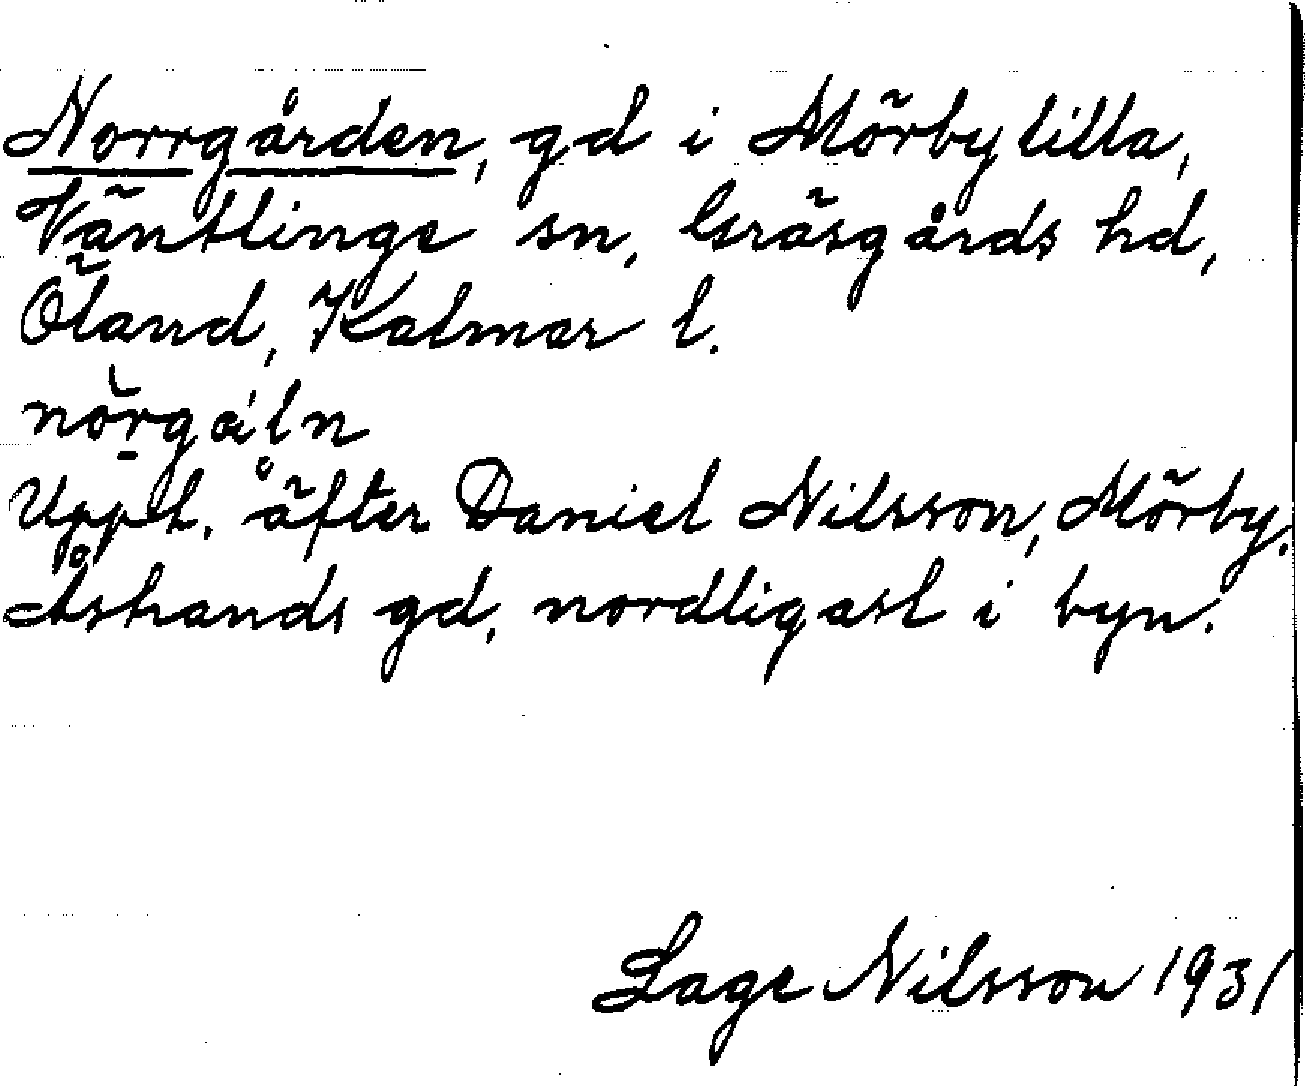 Norrgården, gd i Mörby lilla,
Väntlinge sn, Gräsgårds hd,
Öland, Kalmar l.
nŏrgáln
Uppt. äfter Daniel Nilsson, Mörby.
Åstrands gd, nordligast i byn.
Lage Nilsson 1931